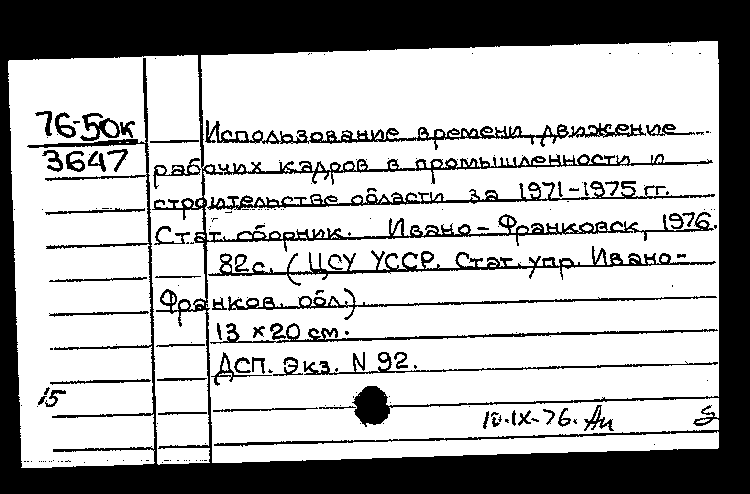 76-50к
3647
Использование времени, движение
рабочих кадров в промышленности и
строительстве области за 1971-1975 гг.
Стат. сборник. Ивано-Франковск, 1976.
82с. (ЦСУ УССР. Стат. упр. Ивано-
Франков. обл.).
13 x 20 см.
ДСП. Экз. N 92.
15
10.IX-76.